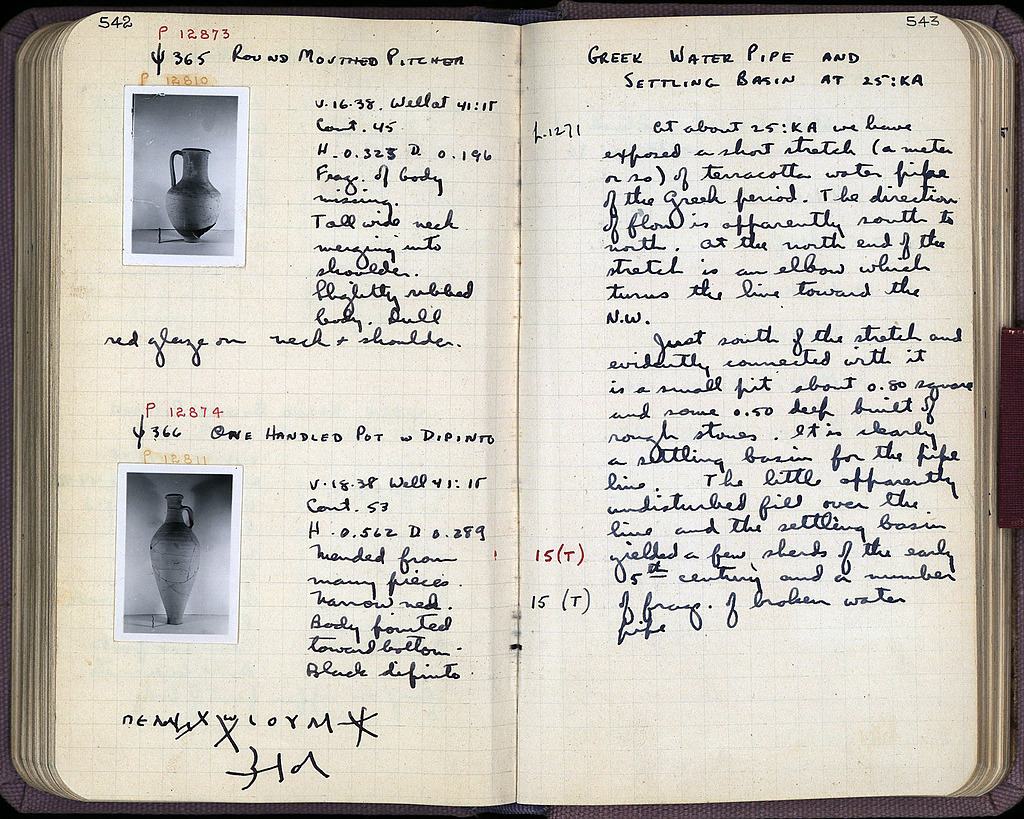 542
P 12873
ψ 365 ROUND MOUTHED PITCHER
P 12810
V·16·38. Well at 41:IT
Cont. 45
H. 0.323 D 0.196
Frag. of body
missing.
Tall wide neck
merging into
shoulder.
Slightly ribbed
body. Dull
red glaze on neck + shoulder.
P 12874
ψ 366 ONE HANDLED POT W DIPINTO
P 12811
V·18·38 Well 41:IT
Cont. 53
H. 0.562 D 0.289
Mended from
many pieces.
Narrow neck.
Body pointed
toward bottom.
Black dipinto
543
GREEK WATER PIPE AND
SETTLING BASIN AT 25:KA
L.1271
At about 25:KA we have
exposed a short stretch (a meter
or so) of terracotta water pipe
of the Greek period. The direction
of flow is apparently south to
north. At the north end of the
stretch is an elbow which
turns the line toward the
N.W.
Just south of the stretch and
evidently connected with it
is a small pit about 0.80 square
and some 0.50 deep built of
rough stones. It is clearly
a settling basin for the pipe
line. The little apparently
undisturbed fill over the
line and the settling basin
15(T) yielded a few sherds of the early
5th century and a number
15 (T) of frags. of broken water
pipe